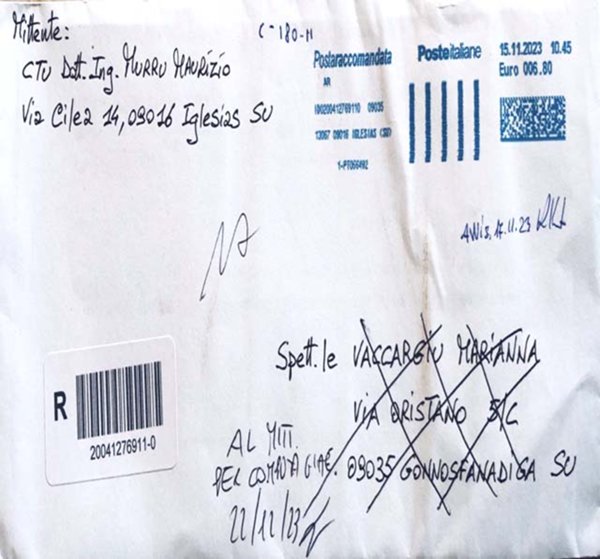 Mittente:
C-180-H
CTU Dott. Ing. MURRU MAURIZIO
Via Cilea 14, 09016 Iglesias SU
Postaraccomandata
AR
13067 09016 IGLESIAS (SU)
Posteitaliane
15.11.2023 10.45
Euro 006.80
Avvis. 17.11.23
Spett.le VACCARGIU MARIANNA
VIA ORISTANO 5/C
09035 GONNOSFANADIGA SU
R
20041276911-0
AL MITT.
PER COMPIUTA GIAC.
22/12/23